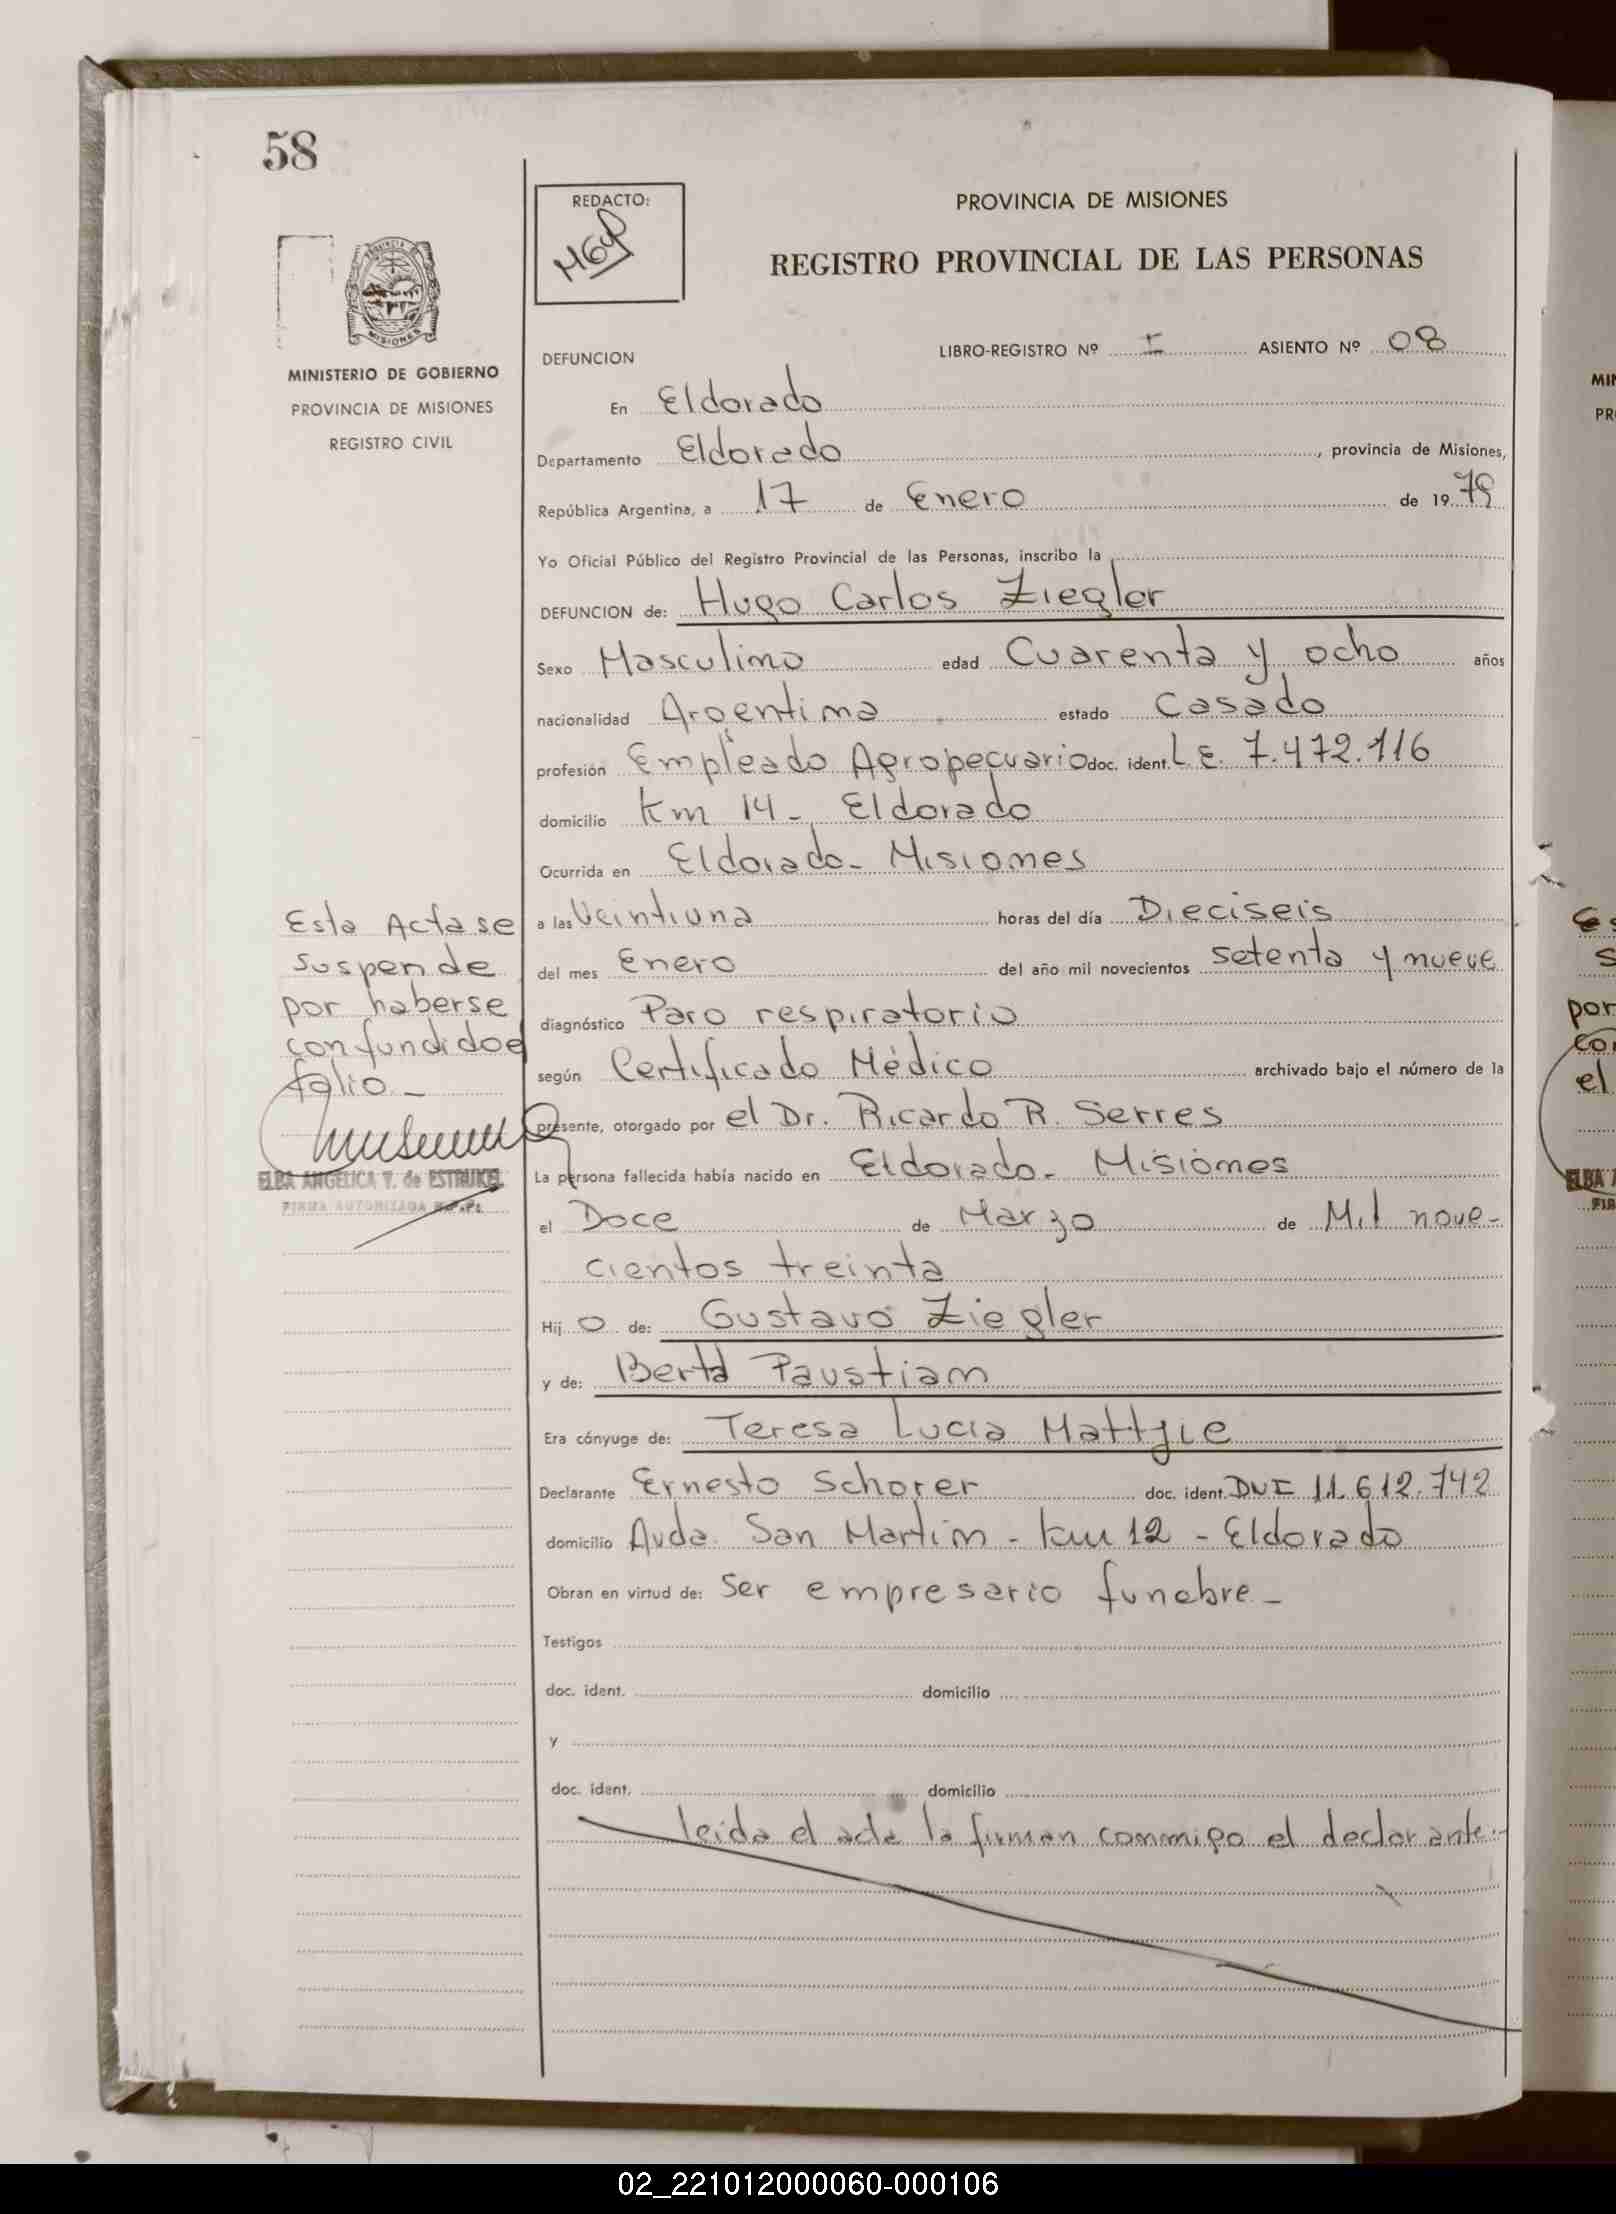 58
REDACTO:
PROVINCIA DE MISIONES
REGISTRO PROVINCIAL DE LAS PERSONAS
MISIONES
MINISTERIO DE GOBIERNO
PROVINCIA DE MISIONES
REGISTRO CIVIL
DEFUNCION LIBRO-REGISTRO Nº I ASIENTO Nº 08
En Eldorado
Departamento Eldorado, provincia de Misiones,
República Argentina, a 17 de Enero de 19 79
Yo Oficial Público del Registro Provincial de las Personas, inscribo la
DEFUNCION de: Hugo Carlos Ziegler
Sexo Masculino edad Cuarenta y ocho años
nacionalidad Argentina estado Casado
profesión Empleado Agropecuario doc. ident. L.E. 7.472.116
domicilio Km 14 - Eldorado
Ocurrida en Eldorado - Misiones
a las Veintiuna horas del día Dieciseis
del mes Enero del año mil novecientos setenta y nueve
diagnóstico Paro respiratorio
según Certificado Médico archivado bajo el número de la
presente, otorgado por el Dr. Ricardo R. Serres
La persona fallecida había nacido en Eldorado - Misiones
el Doce de Marzo de Mil nove-
cientos treinta
Hij o de: Gustavo Ziegler
y de: Berta Paustian
Era cónyuge de: Teresa Lucia Mattjie
Declarante Ernesto Schorer doc. ident. DNI 11.612.742
domicilio Avda. San Martin - Km 12 - Eldorado
Obran en virtud de: Ser empresario funebre -
Testigos
doc. ident. domicilio
y
doc. ident. domicilio
leida el acta la firman conmigo el declarante.-
Esta Acta se
suspende
por haberse
confundido el
folio -
ELBA ANGELICA V. de ESTRUKEL
FIRMA AUTORIZADA R.P.P.
02_221012000060-000106